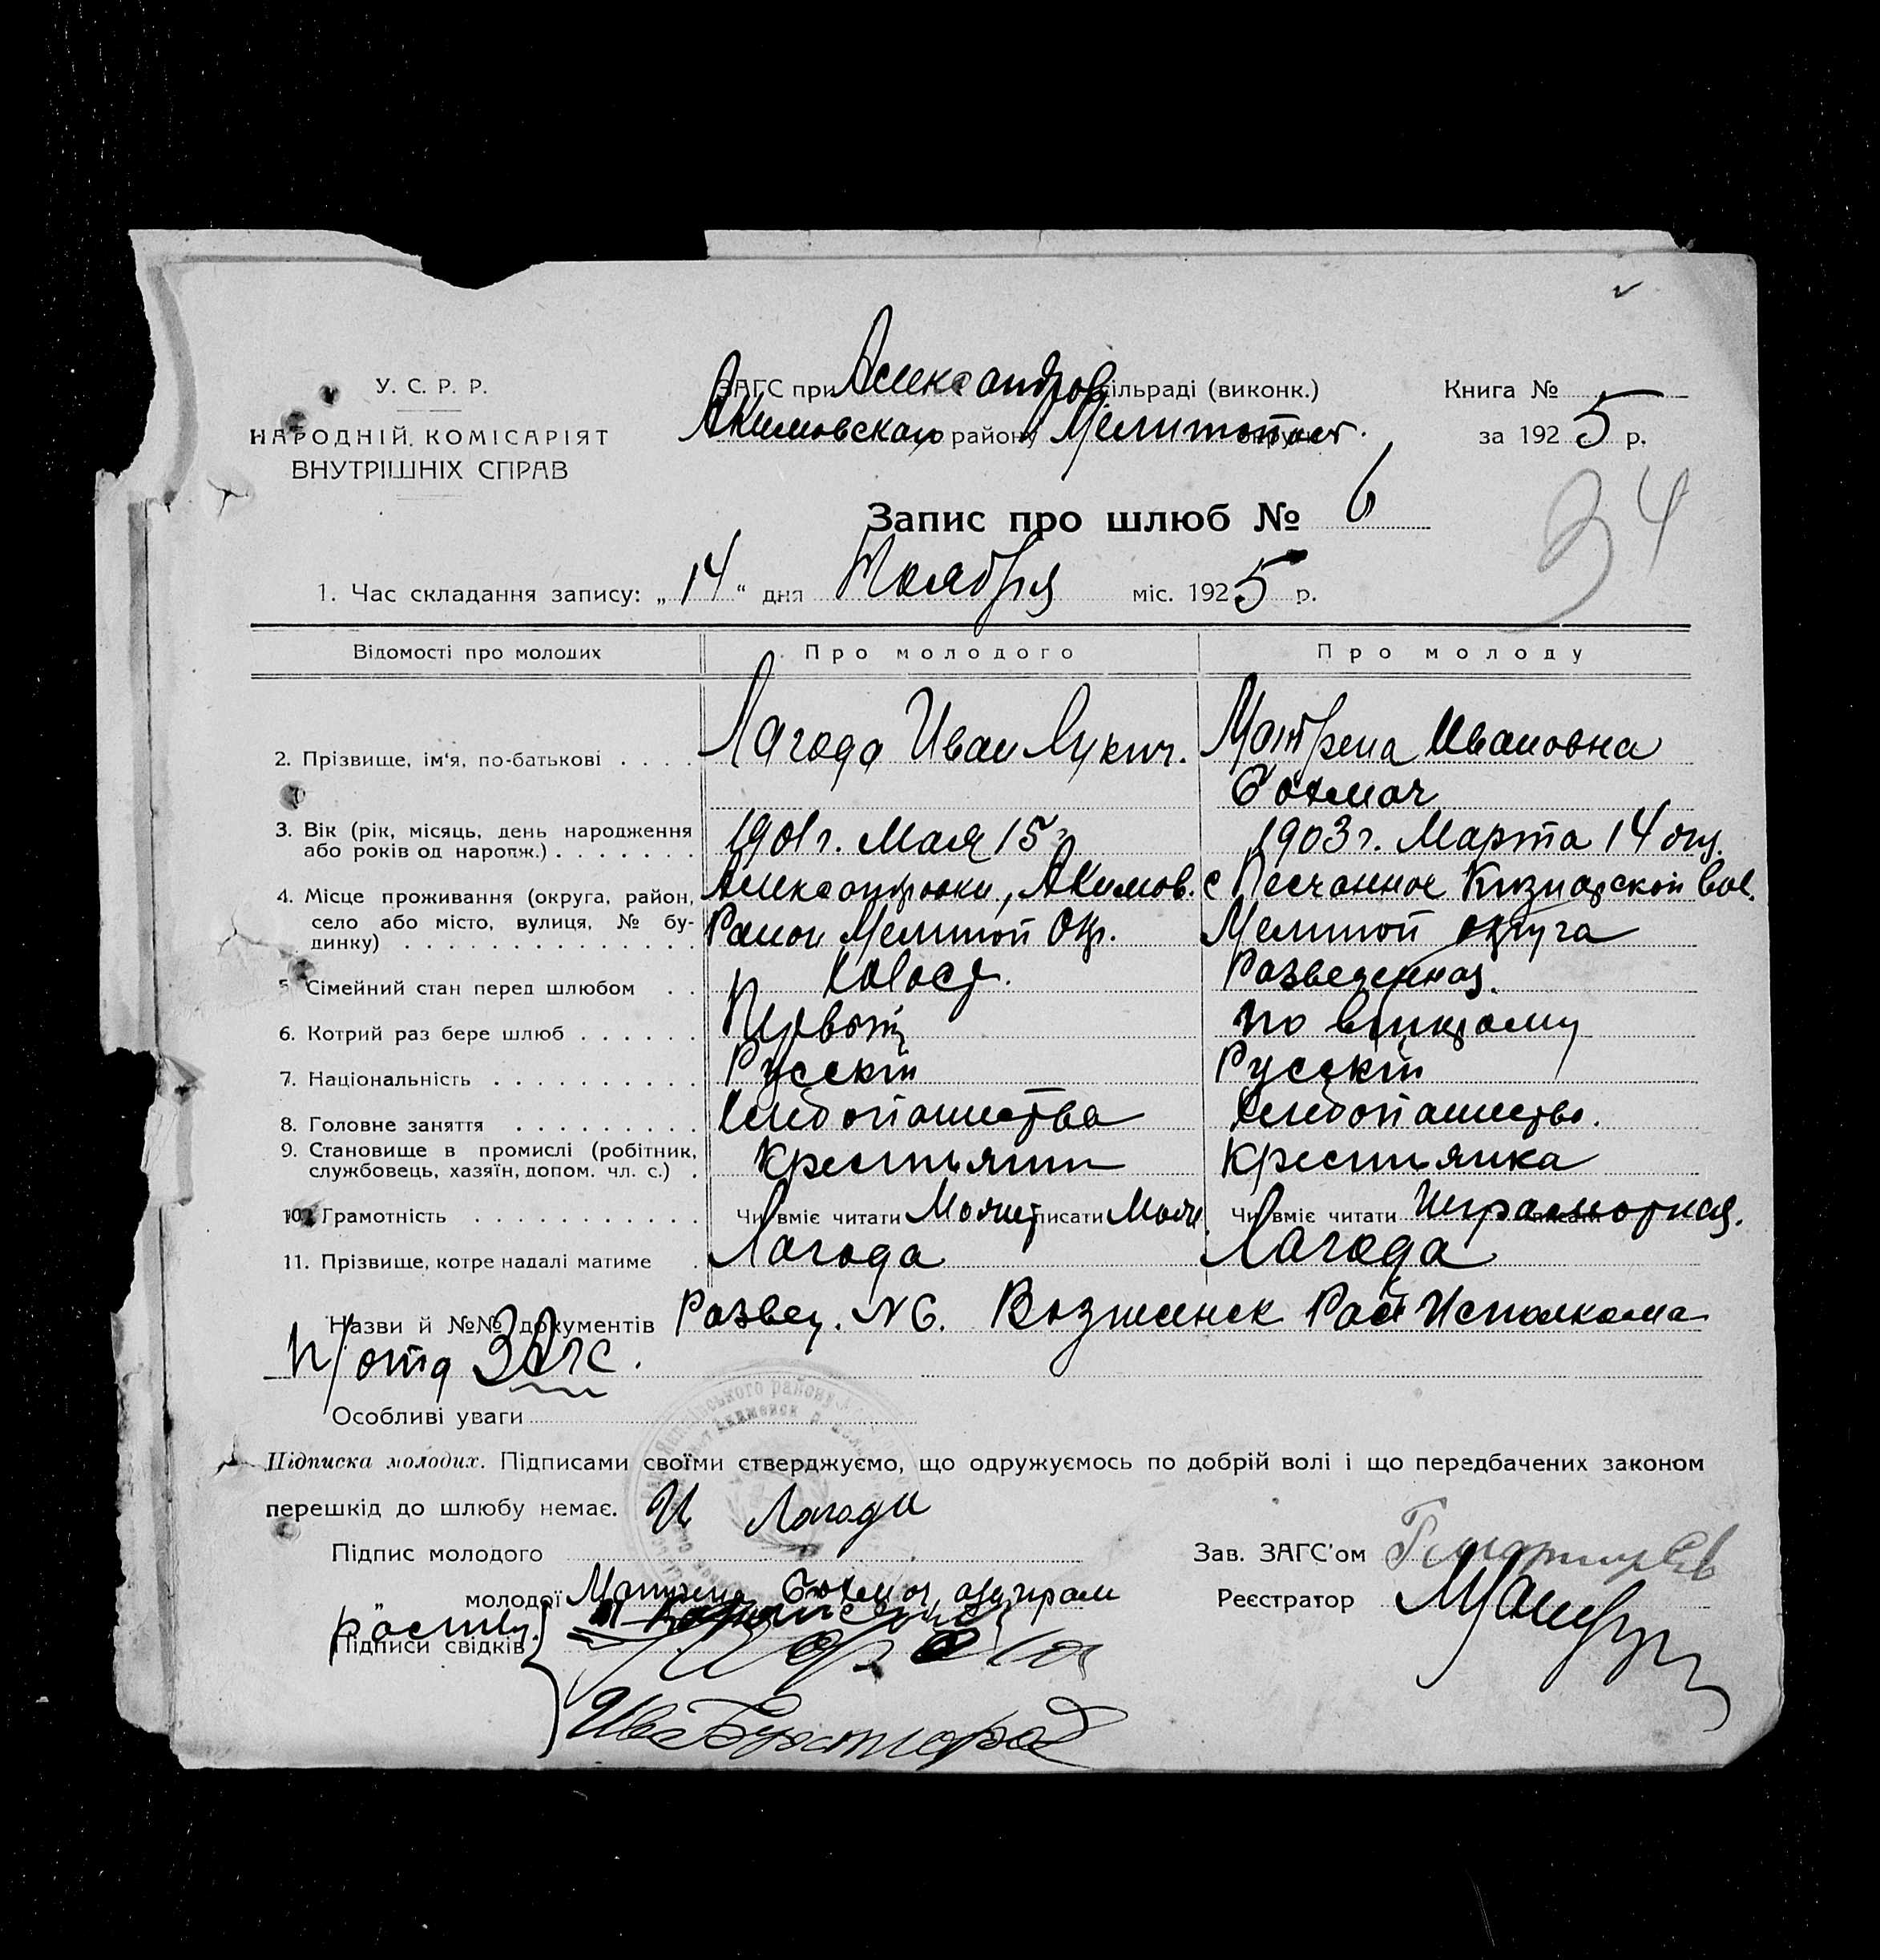 У. С. Р. Р.
НАРОДНІЙ КОМІСАРІЯТ
ВНУТРІШНІХ СПРАВ
ЗАГС при Александров сільраді (виконк.)
Акимовскаго району Мелитопол. округи
Книга №
за 1925 р.
Запис про шлюб № 6
34
1. Час складання запису: „14“ дня Ноября міс. 1925 р.
Відомості про молодих Про молодого Про молоду
2. Прізвище, ім'я, по-батькові . . . . Лагода Иван Лукич. Матрена Ивановна
3. Вік (рік, місяць, день народження 1901 г. Мая 15 1903 г. Марта 14
або років од народж.) . . . . . . .
4. Місце проживання (округа, район, Александровки, Акимов. с Песчанное
село або місто, вулиця, № бу- Район Мелитоп Окр. Мелитоп округа
динку) . . . . . . . . . . . . . .
5 Сімейний стан перед шлюбом . . Холост. Разведенная.
6. Котрий раз бере шлюб . . . . . . Первый по
7. Національність . . . . . . . . . . Русский Русский
8. Головне заняття . . . . . . . . . Хлебопашества Хлебопашество.
9. Становище в промислі (робітник, Крестьянин Крестьянка
службовець, хазяїн, допом. чл. с.) .
10. Грамотність . . . . . . . . . . . Чи вміє читати Может писати Может Чи вміє читати Неграмотная.
11. Прізвище, котре надалі матиме . Лагода Лагода
Назви й №№ документів Развед. № 6. Рай Исполкома
п/отд Загс.
Особливі уваги
Підписка молодих. Підписами своїми стверджуємо, що одружуємось по добрій волі і що передбачених законом
перешкід до шлюбу немає. И Лагода
Підпис молодого
Зав. ЗАГС'ом
молодої Матрена
Реєстратор
Підписи свідків